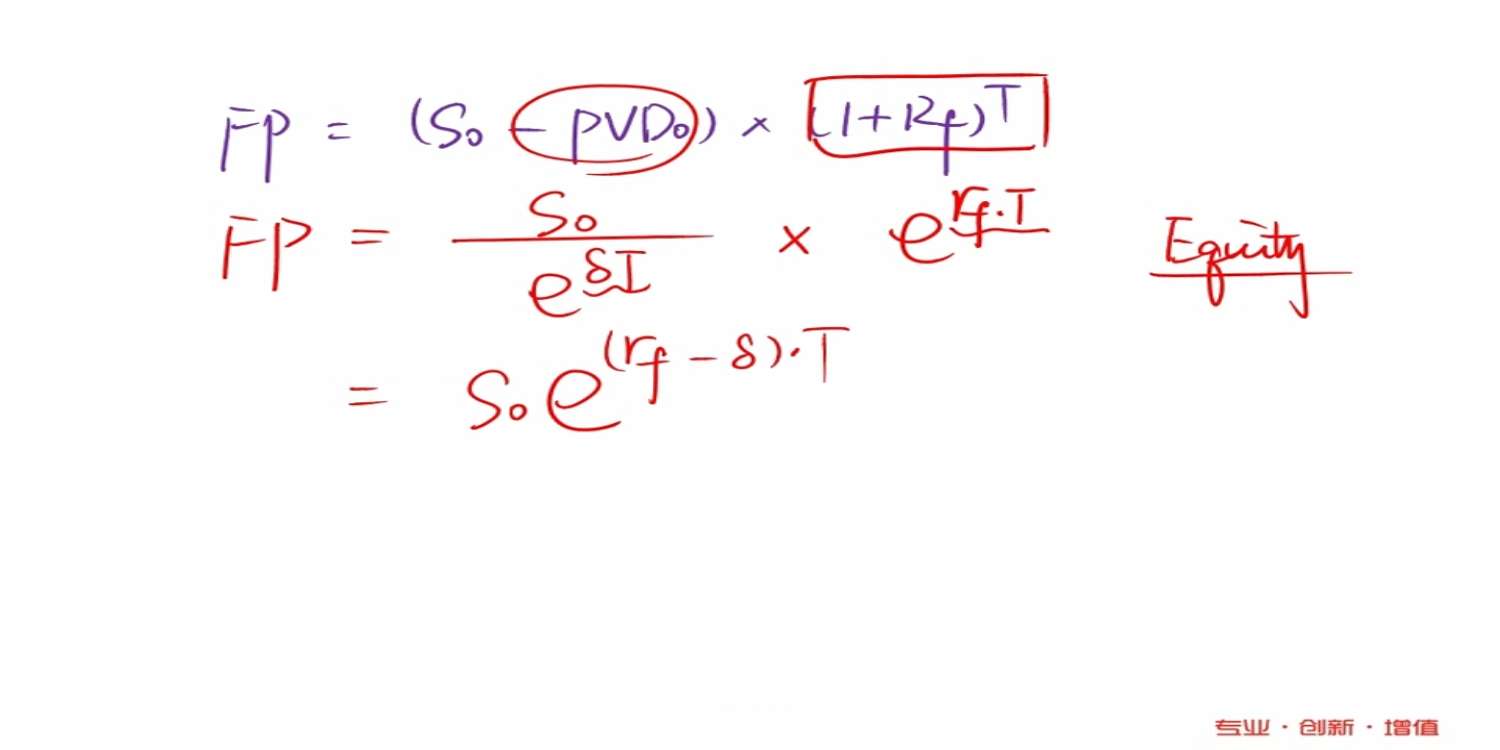 FP = (S₀ - PVD₀) × (1+Rf)^T
FP = S₀ / e^{δT} × e^{rf·T} Equity
= S₀e^{(rf - δ)·T}
专业·创新·增值